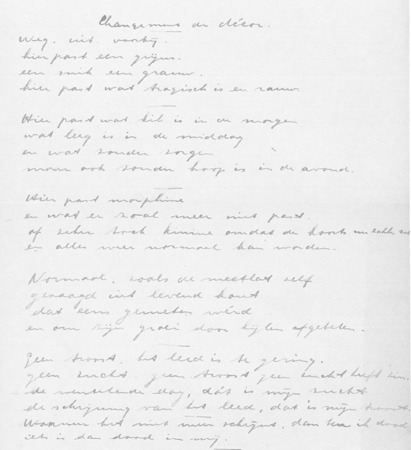 Changement de décor.
Weg, uit, voorbij.
hier past een grijns.
een snik een grauw.
hier past wat tragisch is en rauw.
Hier past wat kil is in de morgen
wat leeg is in de middag
en wat zonder zorgen
maar ook zonder hoop is in de avond.
Hier past morphine
en wat er zoal meer niet past.
of zeker toch kinine omdat de koorts
en alles weer normaal kan worden.
Normaal, zoals de meetlat zelf
gezaagd uit levend hout
dat eens gemeten wérd
en om zijn groei door bijlen afgebeten.
Geen troost, het leed is te gering.
geen zucht, geen troost geen zucht heeft zin.
de dag, dát is mijn zucht
de schijning van het leed, dat is mijn troost.
Wanneer het niet meer schijnt, dan ben ik dood
iets is dan dood in mij.